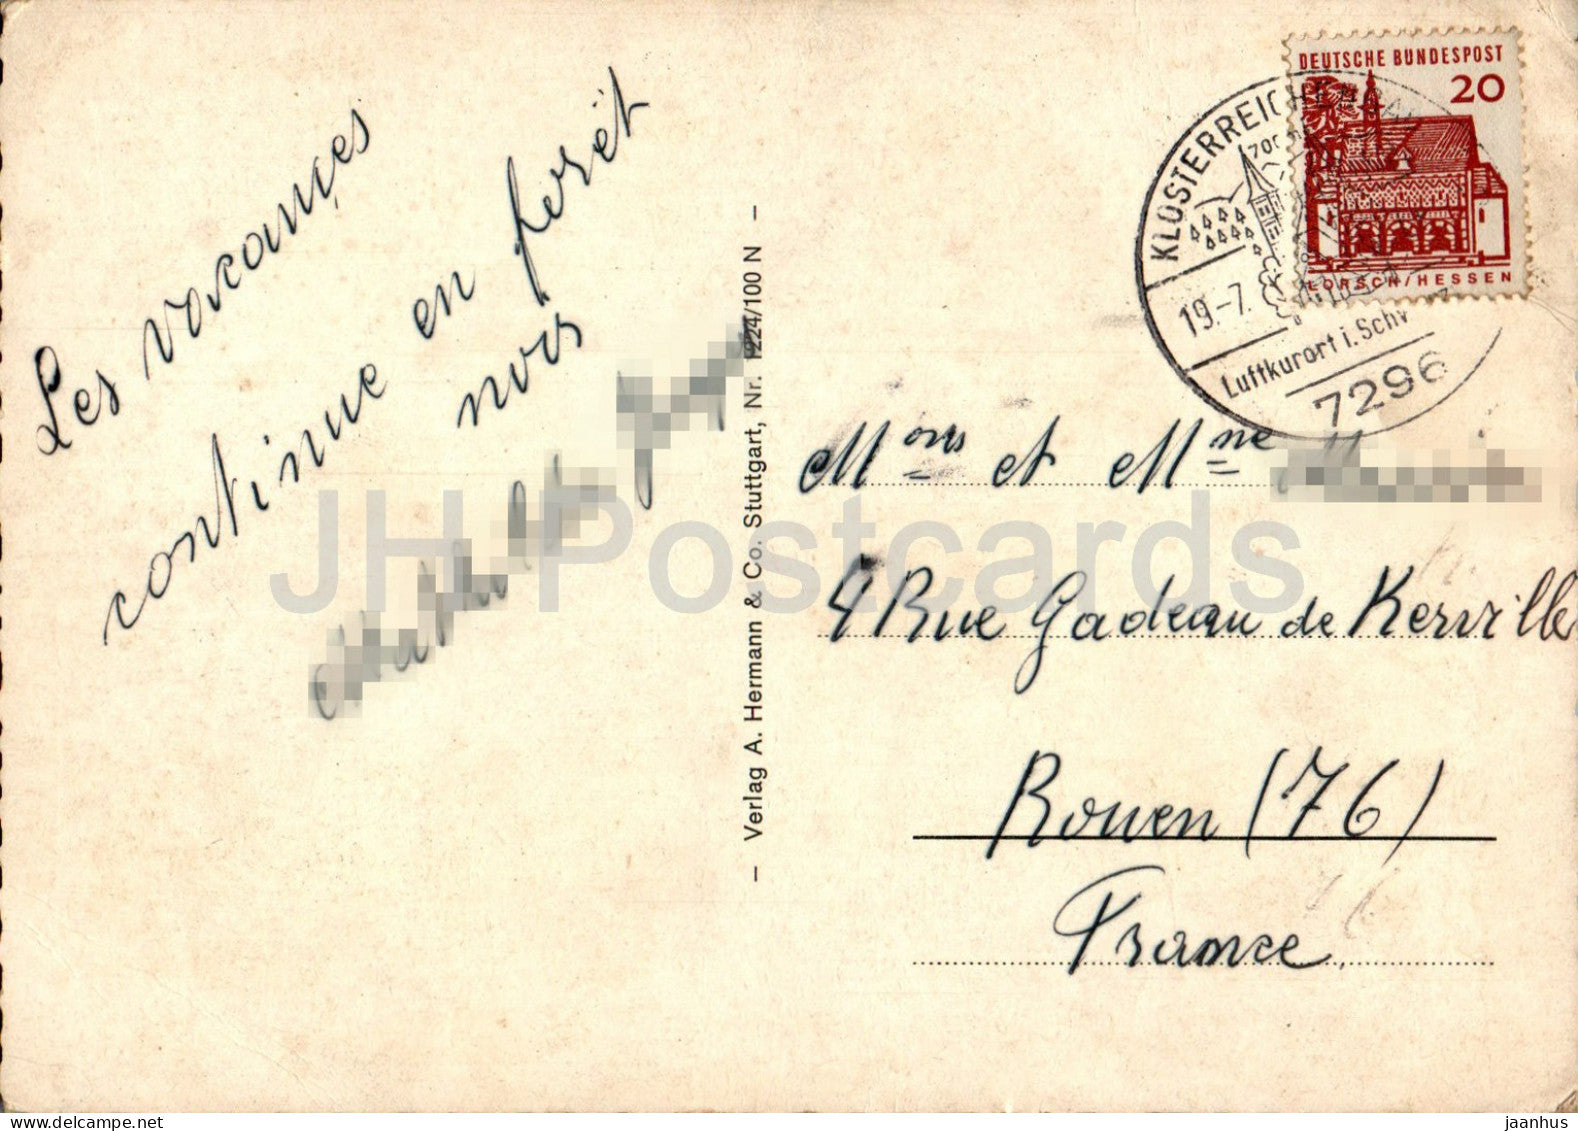 Les vacances
continue en forêt
noire
Mons et Mme
4 Rue Gadeau de Kerville
Rouen (76)
France
– Verlag A. Hermann & Co. Stuttgart, Nr. 1224/100 N –
DEUTSCHE BUNDESPOST
20
LORSCH/HESSEN
KLOSTERREICHENBACH
19.-7.
Luftkurort i. Schw
7296
JH Postcards
www.delcampe.net
jaanhus